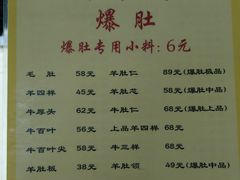 爆肚
爆肚专用小料：6元
毛肚 58元 羊肚仁 89元(爆肚极品)
羊四样 45元 羊肚芯 58元(爆肚中品)
牛厚头 62元 牛肚仁 68元(爆肚上品)
牛百叶 56元 上品羊四样 68元
牛百叶尖 58元 牛三样 68元
羊肚板 38元 羊肚领 49元(爆肚中品)